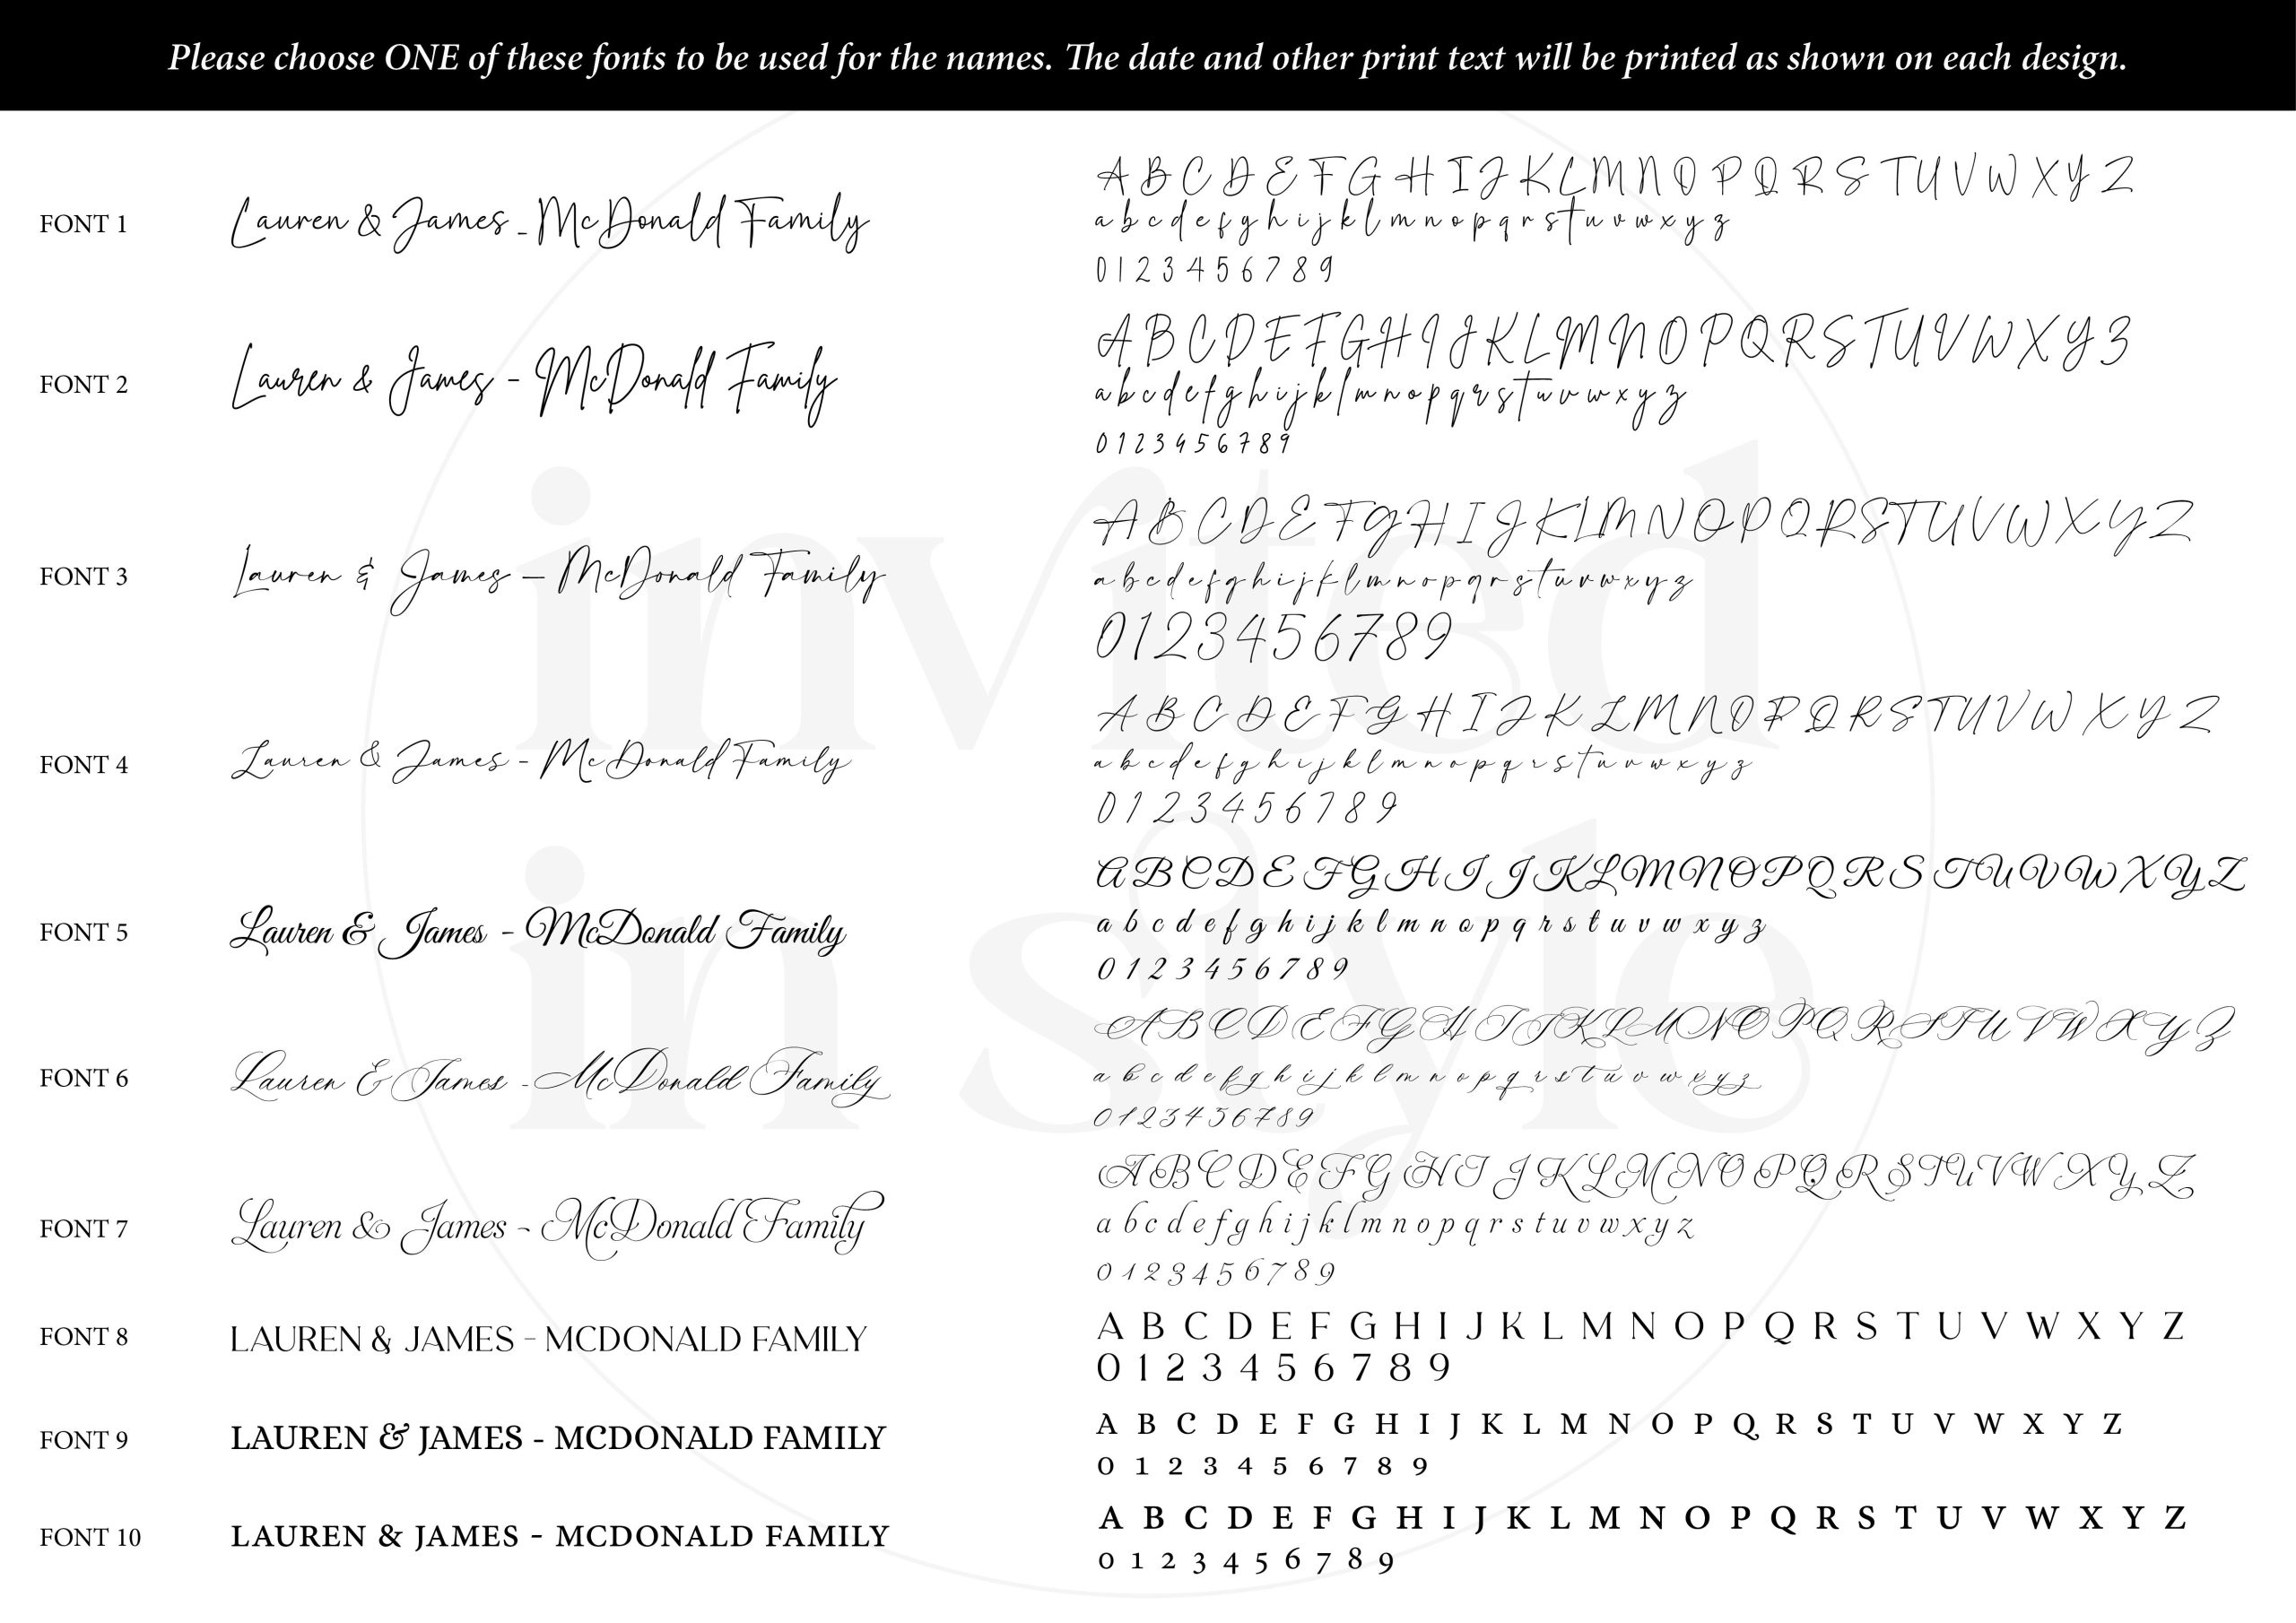 Please choose ONE of these fonts to be used for the names. The date and other print text will be printed as shown on each design.
FONT 1
Lauren & James - McDonald Family
A B C D E F G H I J K L M N O P Q R S T U V W X Y Z
a b c d e f g h i j k l m n o p q r s t u v w x y z
0 1 2 3 4 5 6 7 8 9
FONT 2
Lauren & James - McDonald Family
A B C D E F G H I J K L M N O P Q R S T U V W X Y Z
a b c d e f g h i j k l m n o p q r s t u v w x y z
0 1 2 3 4 5 6 7 8 9
FONT 3
Lauren & James – McDonald Family
A B C D E F G H I J K L M N O P Q R S T U V W X Y Z
a b c d e f g h i j k l m n o p q r s t u v w x y z
0 1 2 3 4 5 6 7 8 9
FONT 4
Lauren & James - McDonald Family
A B C D E F G H I J K L M N O P Q R S T U V W X Y Z
a b c d e f g h i j k l m n o p q r s t u v w x y z
0 1 2 3 4 5 6 7 8 9
FONT 5
Lauren & James - McDonald Family
A B C D E F G H I J K L M N O P Q R S T U V W X Y Z
a b c d e f g h i j k l m n o p q r s t u v w x y z
0 1 2 3 4 5 6 7 8 9
FONT 6
Lauren & James - McDonald Family
A B C D E F G H I J K L M N O P Q R S T U V W X Y Z
a b c d e f g h i j k l m n o p q r s t u v w x y z
0 1 2 3 4 5 6 7 8 9
FONT 7
Lauren & James - McDonald Family
A B C D E F G H I J K L M N O P Q R S T U V W X Y Z
a b c d e f g h i j k l m n o p q r s t u v w x y z
0 1 2 3 4 5 6 7 8 9
FONT 8
LAUREN & JAMES - MCDONALD FAMILY
A B C D E F G H I J K L M N O P Q R S T U V W X Y Z
0 1 2 3 4 5 6 7 8 9
FONT 9
LAUREN & JAMES - MCDONALD FAMILY
A B C D E F G H I J K L M N O P Q R S T U V W X Y Z
0 1 2 3 4 5 6 7 8 9
FONT 10
LAUREN & JAMES - MCDONALD FAMILY
A B C D E F G H I J K L M N O P Q R S T U V W X Y Z
0 1 2 3 4 5 6 7 8 9
invited
in style